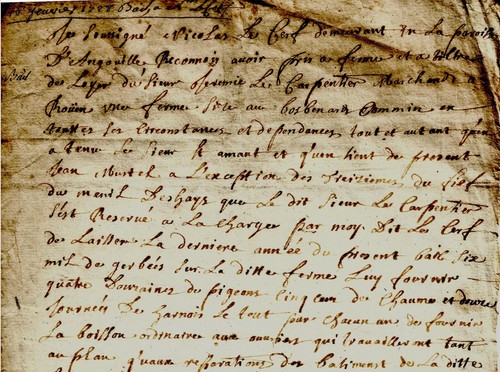 fevrier
Bail
Je soussigné Nicolas Le Cerf demeurant En La paroisse
D'Angoville Reconnois avoir pris a ferme et a tiltre
de Loyer du sieur Le Carpentier Marchand a
Roüen une ferme size au bosbenard Commin en
toutes ses Circonstances et dependances tout et autant qu'en
a tenu Le sieur St amant et qu'en tient de present
Jean Martel a L'exception des treiziemes du fief
du menil Deshays que Le dit sieur Le Carpentier
s'est Reserve a La charge par moy Dit Le Cerf
de Laisser La derniere année du present bail six
mil de gerbées sur La ditte ferme Luy fournir
quatre Douzaines de pigeons Cinq cen de Chaume et douze
Journées De harnois Le tout par chacun an de fournir
La boisson ordinaire aux ouvriers qui travailleront tant
au plan qu'aux reparations des batiments de La ditte